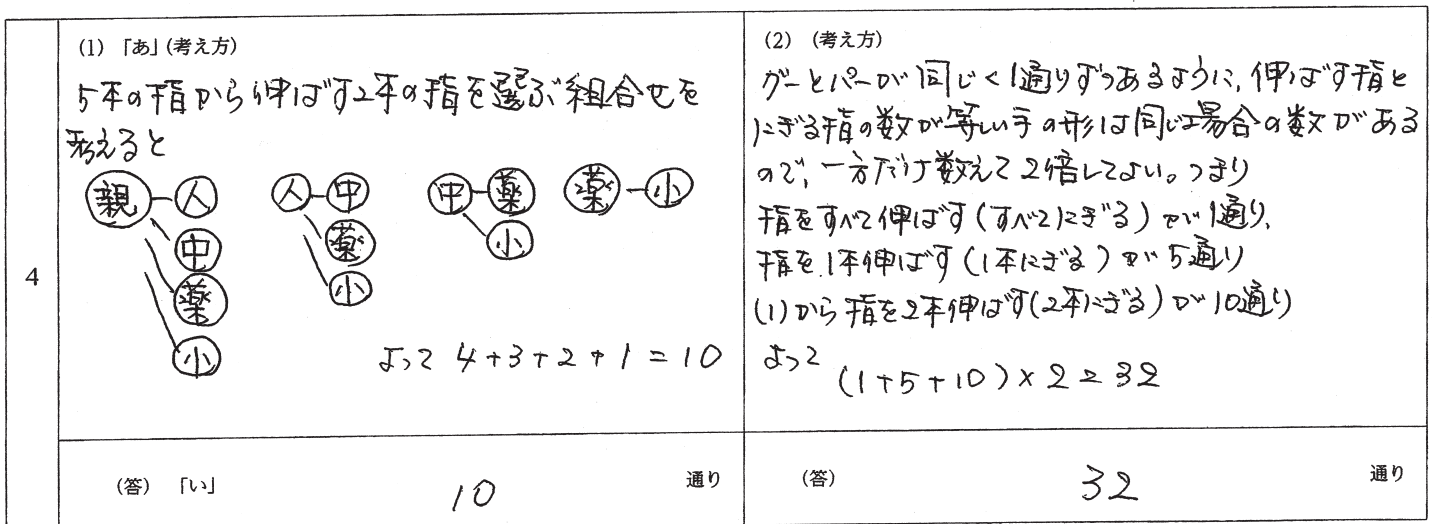 4
(1) 「あ」(考え方)
5本の指から伸ばす2本の指を選ぶ組合せを
考えると
親 人 人 中 中 薬 薬 小
中 薬 小
薬 小
小
よって 4+3+2+1=10
(答) 「い」 10 通り
(2) (考え方)
グーとパーが同じく1通りずつあるように、伸ばす指と
にぎる指の数が等しい手の形は同じ場合の数がある
ので、一方だけ数えて2倍してよい。つまり
指をすべて伸ばす(すべてにぎる)が1通り、
指を1本伸ばす(1本にぎる)が5通り
(1)から指を2本伸ばす(2本にぎる)が10通り
よって
(1+5+10)×2=32
(答) 32 通り